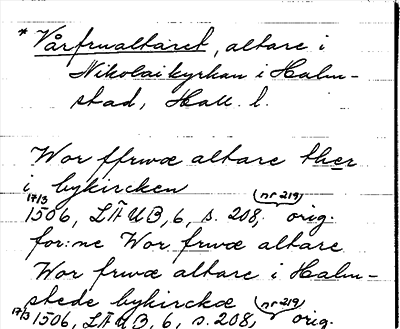 * Vårfrualtaret, altare i
Nikolaikyrkan i Halm-
stad, Hall. l.
Wor ffrwæ altare ther
i bykircken
17/3 1506, LÄUB, 6, s. 208, (nr 219) orig.
for:ne Wor frwæ altare
Wor frwæ altare i Halm-
stede bykirckæ
17/3 1506, LÄUB, 6, s. 208, (nr 219) orig.